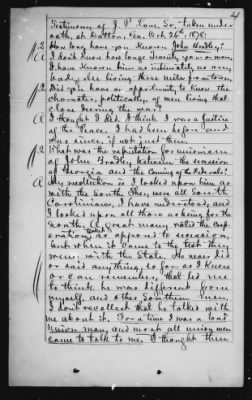 4
Testimony of J. P. Love, Sr., taken under
oath, at Dalton, Ga., Oct. 26th, 1878:
Q How long have you known John Bradley?
A I don't know how long, twenty years or more,
I have known him as intimately as any
body else living three miles from town,
Q Did you have an opportunity to know the
character, politically, of men living that
close during the war?
A I thought I did. I think I was a Justice
of the Peace. I had been before and
was since, if not just then.
Q What was the reputation for unionism
of John Bradley between the secession
of Georgia and the coming of the Federals?
A My recollection is I looked upon him as
with the South. They were all South
Carolinians, I have understood, and
I looked upon all those as being for the
South. A great many voted the
opposed to secession,
but when it came to the test they
were with the State. He never did
or said anything, so far as I know
or can remember, that led me
to think he was different from
myself, and other Southern men,
I don't recollect that he talked with
me about it. For a time I was a
Union man, and most all union men
come to talk to me. I thought then